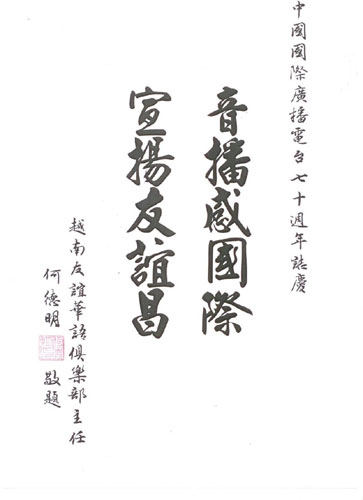 中國國際廣播電台七十週年誌慶
音播感國際
宣揚友誼昌
越南友誼華語俱樂部主任
何德明
敬題